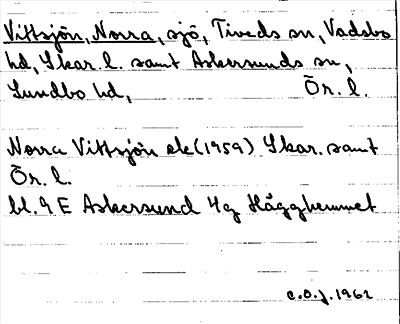 Vittsjön, Norra, sjö, Tiveds sn, Vadsbo
hd, Skar. l. samt Askersunds sn,
Sundbo hd, Ör. l.
Norra Vittsjön ek (1959) Skar. samt
Ör. l.
bl. 9 E Askersund 4g Hägghemmet
C.O.J. 1962